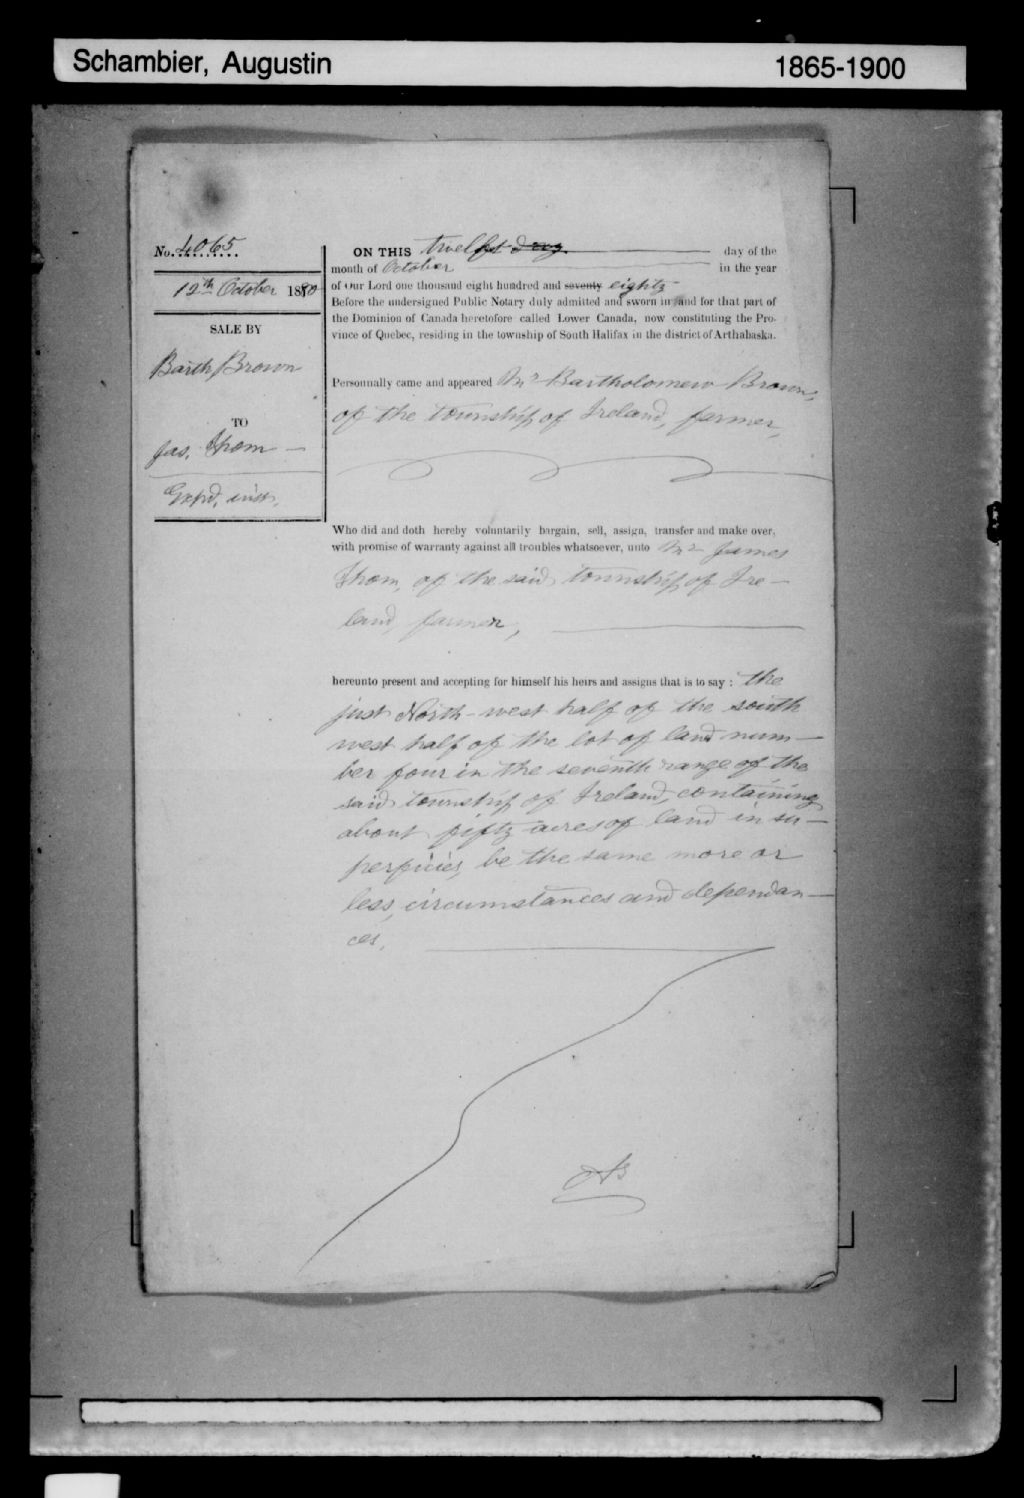 Schambier, Augustin
1865-1900
No. 4065
12th October 1880
SALE BY
Barth. Brown
TO
Jas. Thom —
Expd. inst.
ON THIS twelfst day day of the
month of October in the year
of Our Lord one thousand eight hundred and seventy eighty -
Before the undersigned Public Notary duly admitted and sworn in and for that part of
the Dominion of Canada heretofore called Lower Canada, now constituting the Pro-
vince of Quebec, residing in the township of South Halifax in the district of Arthabaska.
Personnally came and appeared Mr Bartholomew Brown,
of the township of Ireland, farmer,
Who did and doth hereby voluntarily bargain, sell, assign, transfer and make over,
with promise of warranty against all troubles whatsoever, unto Mr James
Thom, of the said township of Ire-
land, farmer,
hereunto present and accepting for himself his heirs and assigns that is to say : the
just North-west half of the south
west half of the lot of land num-
ber four in the seventh range of the
said township of Ireland, containing
about fifty acres of land in su-
perficies, be the same more or
less, circumstances and dependan-
ces.